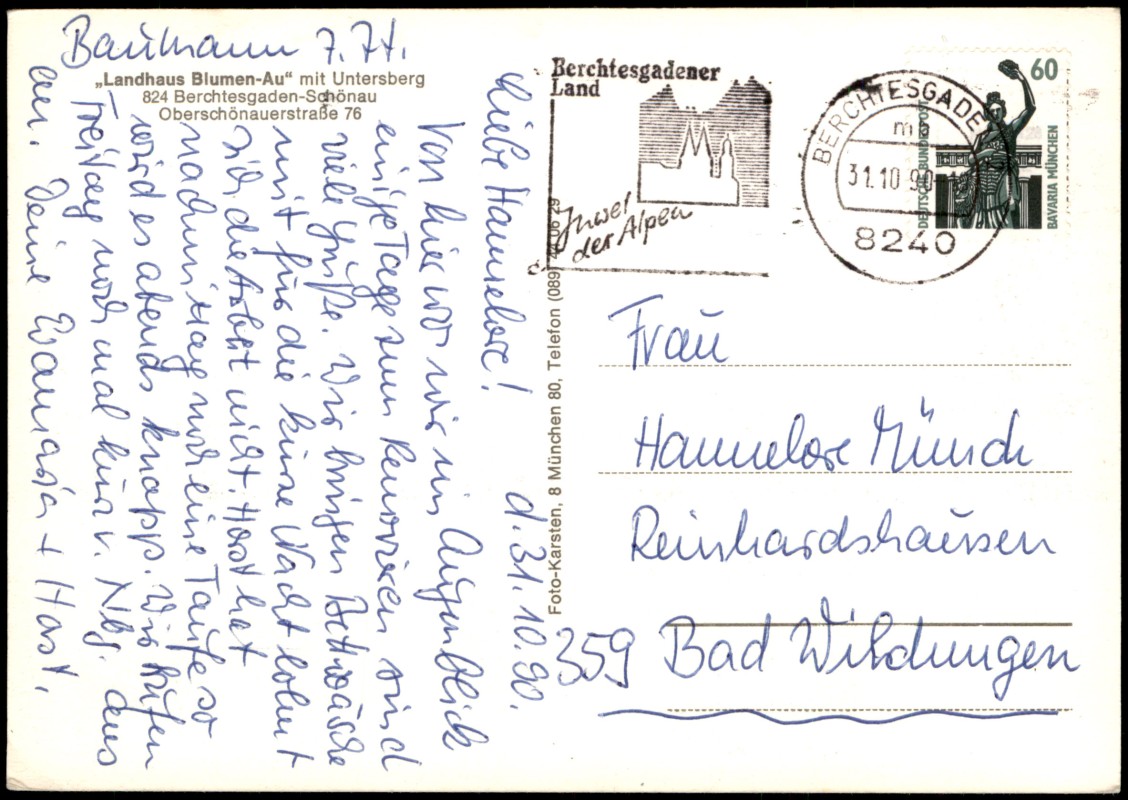 Baumann 7.74.
„Landhaus Blumen-Au“ mit Untersberg
824 Berchtesgaden-Schönau
Oberschönauerstraße 76
Liebe Hannelore!
d. 31.10.90.
Von hier wo wir im Augenblick
einige Tage zum Renovieren sind
viele Grüße. Wir bringen Bettwäsche
mit für die kurze Nacht lohnt
sich die Arbeit nicht. Horst hat
nachmittag noch eine Taufe so
wird es abends knapp. Wir rufen
Freitag noch mal kurz v. Nbg. aus
an. Deine Evamaria + Horst.
Foto-Karsten, 8 München 80, Telefon (089) 06 29
Berchtesgadener
Land
Juwel
der Alpen
BERCHTESGADEN
31.10.90
8240
60
DEUTSCHE BUNDESPOST
BAVARIA MÜNCHEN
Frau
Hannelore Münch
Reinhardshausen
359 Bad Wildungen